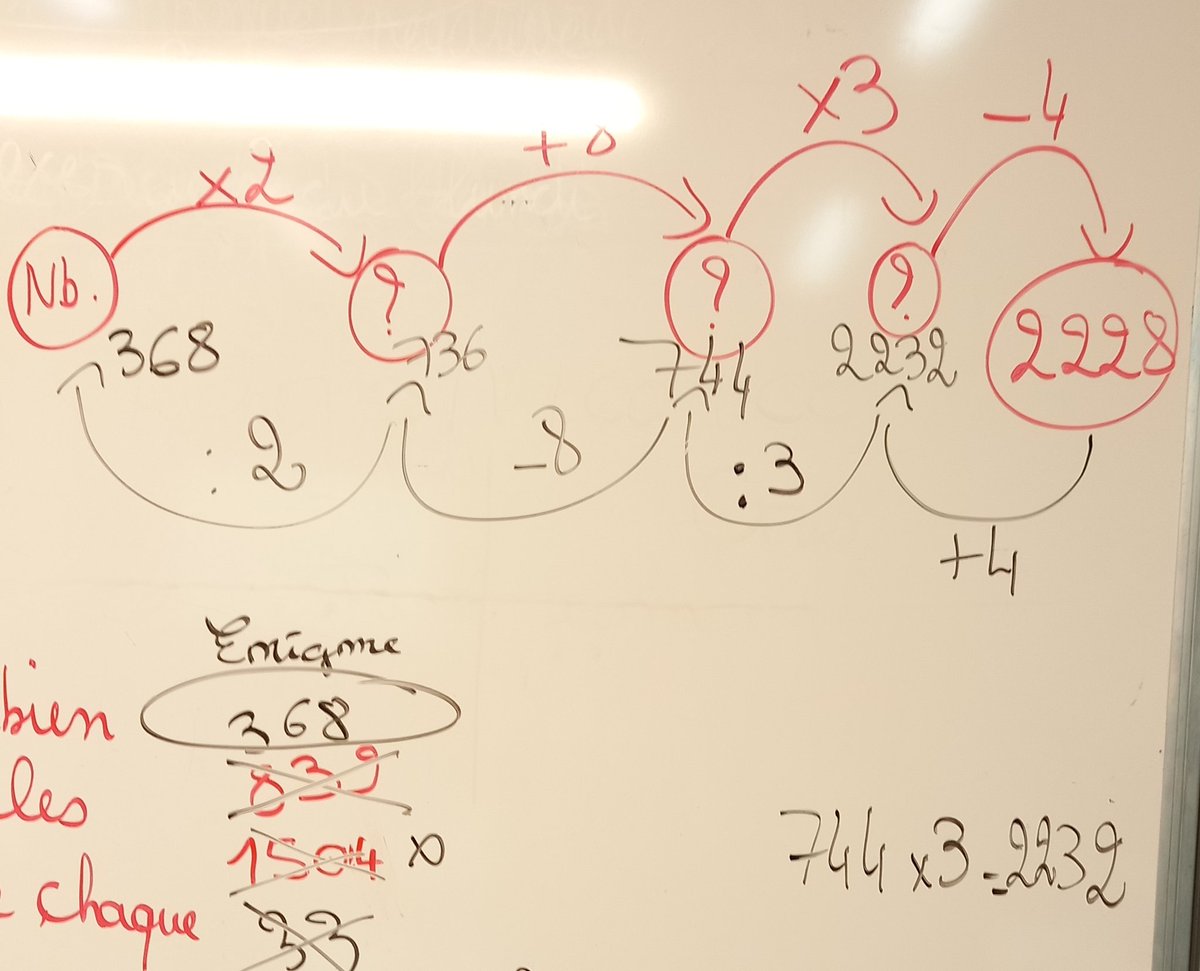 ×2 +0 ×3 -4
Nb. ? ? ? 2228
368 736 744 2232
:2 -8 :3 +4
Enigme
bien 368
839
les
1504
chaque 33
744 × 3 = 2232